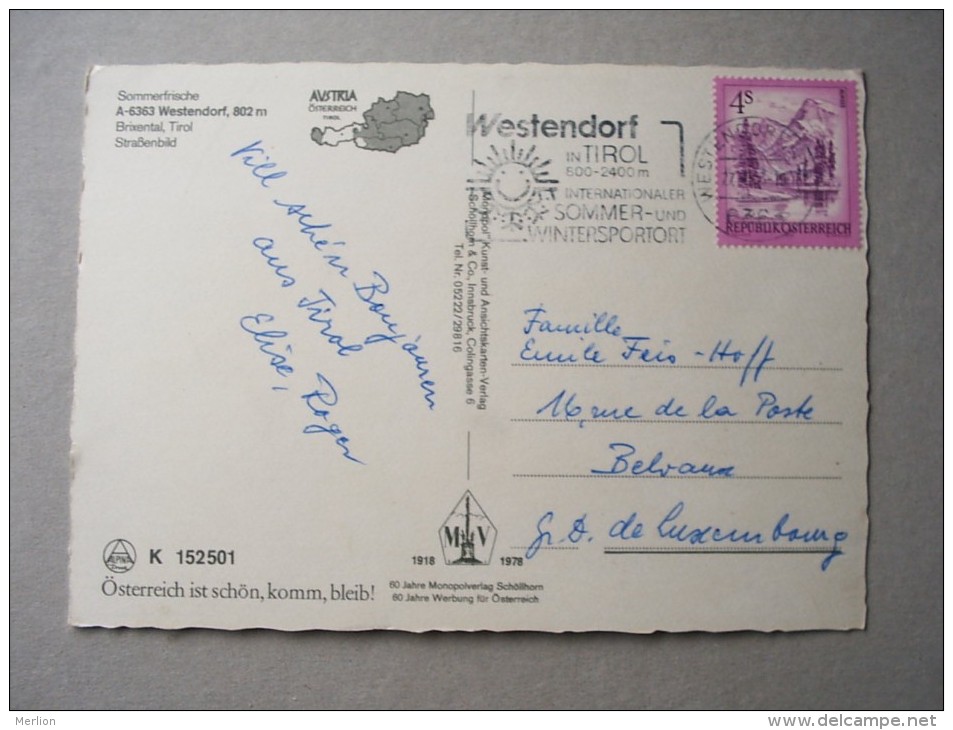 Sommerfrische
A-6363 Westendorf, 802 m
Brixental, Tirol
Straßenbild
AVSTRIA
ÖSTERREICH
TIROL
Vill schéin Bonjouren
aus Tirol
Elise, Roger
"Monopol" Kunst- und Ansichtskarten-Verlag
Schöllhorn & Co., Innsbruck, Colingasse 6
Tel. Nr. 05222/29816
Westendorf
IN TIROL
800-2400 m
INTERNATIONALER
SOMMER- UND
WINTERSPORTORT
WESTENDORF
6363
4 S
REPUBLIK ÖSTERREICH
Famille
Emile Feis-Hoff
16, rue de la Poste
Belvaux
Gr. D. de Luxembourg
ALPINA
K 152501
Österreich ist schön, komm, bleib!
M V
1918 1978
60 Jahre Monopolverlag Schöllhorn
60 Jahre Werbung für Österreich
Merlion
delcampe.net